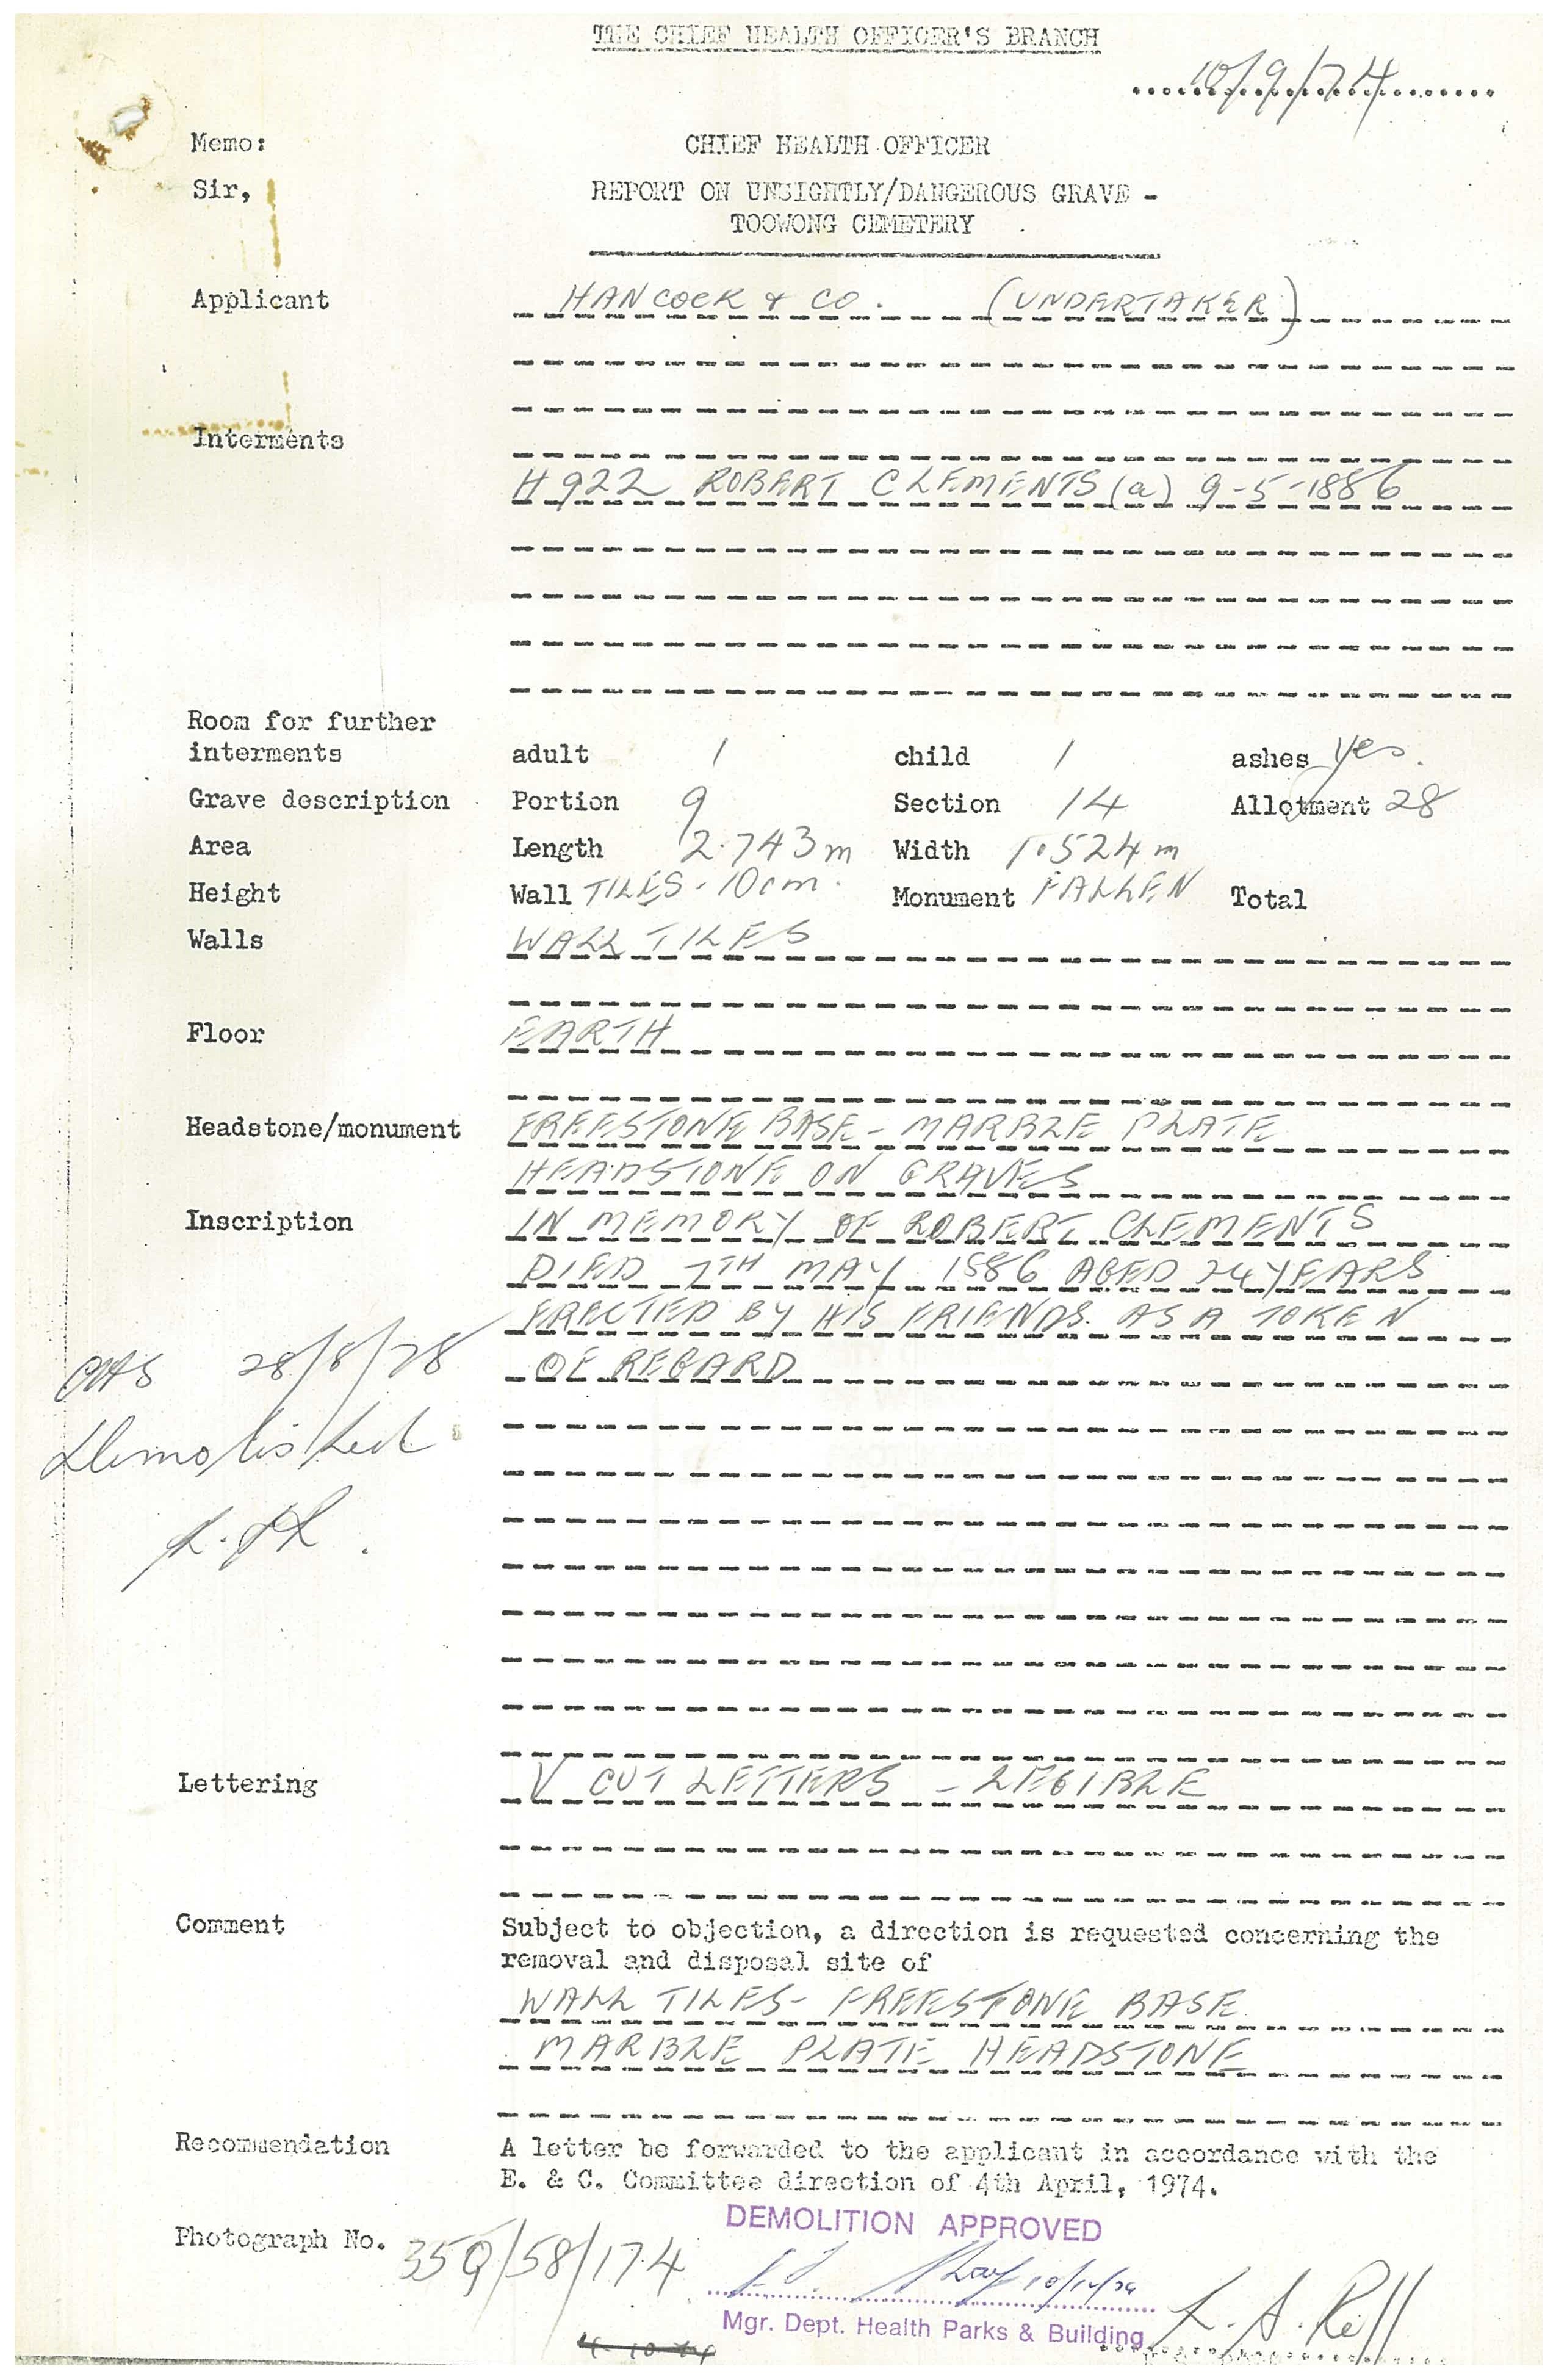 THE CHIEF HEALTH OFFICER'S BRANCH
10/9/74
Memo: CHIEF HEALTH OFFICER
Sir, REPORT ON UNSIGHTLY/DANGEROUS GRAVE -
TOOWONG CEMETERY
Applicant HANCOCK & CO. (UNDERTAKER)
Interments
H922 ROBERT CLEMENTS (a) 9-5-1886
Room for further
interments adult 1 child 1 ashes yes.
Grave description Portion 9 Section 14 Allotment 28
Area Length 2.743m Width 1.524m
Height Wall TILES - 10cm. Monument FALLEN Total
Walls WALL TILES
Floor EARTH
Headstone/monument FREESTONE BASE - MARBLE PLATE
HEADSTONE ON GRAVES
Inscription IN MEMORY OF ROBERT CLEMENTS
DIED 7TH MAY 1886 AGED 24 YEARS
ERECTED BY HIS FRIENDS. AS A TOKEN
28/8/78 OF REGARD
Demolished
Lettering V CUT LETTERS - LEGIBLE
Comment Subject to objection, a direction is requested concerning the
removal and disposal site of
WALL TILES - FREESTONE BASE
MARBLE PLATE HEADSTONE
Recommendation A letter be forwarded to the applicant in accordance with the
E. & C. Committee direction of 4th April, 1974.
DEMOLITION APPROVED
Photograph No. 35Q/58/174
Mgr. Dept. Health Parks & Building